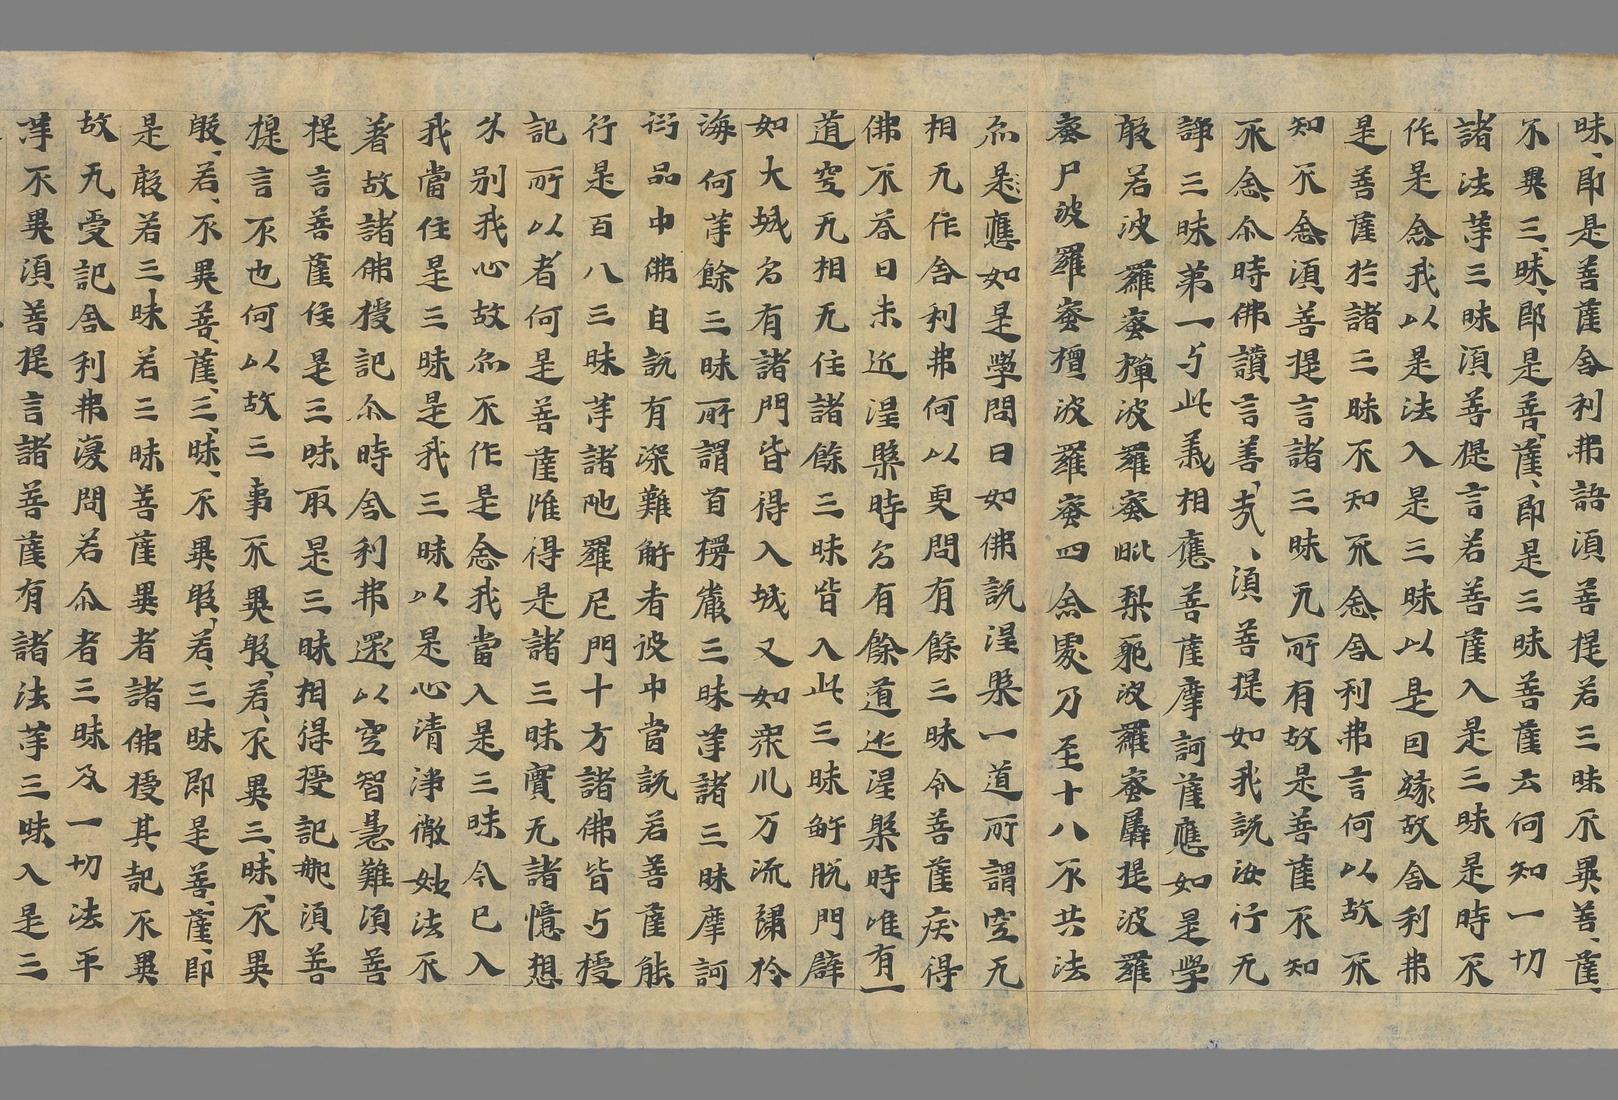 昧、即是菩薩舍利弗語須菩提若三昧不異菩、薩、
不異三、昧、即是菩、薩、即是三昧菩薩云何知一切
諸法等三昧須菩提言若菩薩入是三昧是時不
作是念我以是法入是三昧以是因緣故舍利弗
是菩薩於諸三昧不知不念舍利弗言何以故不
知不念須菩提言諸三昧无所有故是菩薩不知
不念尒時佛讚言善、哉、須菩提如我說汝行无
諍三昧第一与此義相應菩薩摩訶薩應如是學
般若波羅蜜禪波羅蜜毗梨耶波羅蜜羼提波羅
蜜尸波羅蜜檀波羅蜜四念處乃至十八不共法
亦是應如是學問曰如佛說涅槃一道所謂空无
相无作舍利弗何以更問有餘三昧令菩薩疾得
佛不荅曰未近涅槃時多有餘道近涅槃時唯有一
道空无相无住諸餘三昧皆入此三昧解脫門辟
如大城多有諸門皆得入城又如眾川万流歸於
海何等餘三昧所謂首楞嚴三昧等諸三昧摩訶
衍品中佛自說有深難解者彼中當說若菩薩能
行是百八三昧等諸陀羅尼門十方諸佛皆与授
記所以者何是菩薩雖得是諸三昧實无諸憶想
分別我心故亦不作是念我當入是三昧今已入
我當住是三昧是我三昧以是心清淨微妙法不
著故諸佛授記尒時舍利弗還以空智慧難須菩
提言菩薩住是三昧取是三昧相得授記耶須菩
提言不也何以故三事不異般、若、不異三、昧、不異
般、若、不異菩、薩、三、昧、不異般、若、三昧即是菩、薩、即
是般若三昧若三昧菩薩異者諸佛授其記不異
故无受記舍利弗復問若尒者三昧及一切法平
等不異須菩提言諸菩薩有諸法等三昧入是三